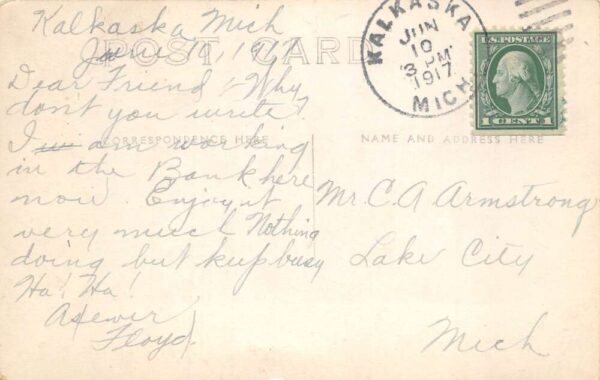 Kalkaska Mich
June 10, 1917
POST CARD
Dear Friend :- Why
dont you write?
I am working
CORRESPONDENCE HERE
in the Bank here
now. Enjoy it
very much Nothing
doing but keep busy
Ha! Ha!
Floyd
KALKASKA
JUN
10
3 PM
1917
MICH
U.S. POSTAGE
1 CENT 1
NAME AND ADDRESS HERE
Mr. C. A Armstrong
Lake City
Mich